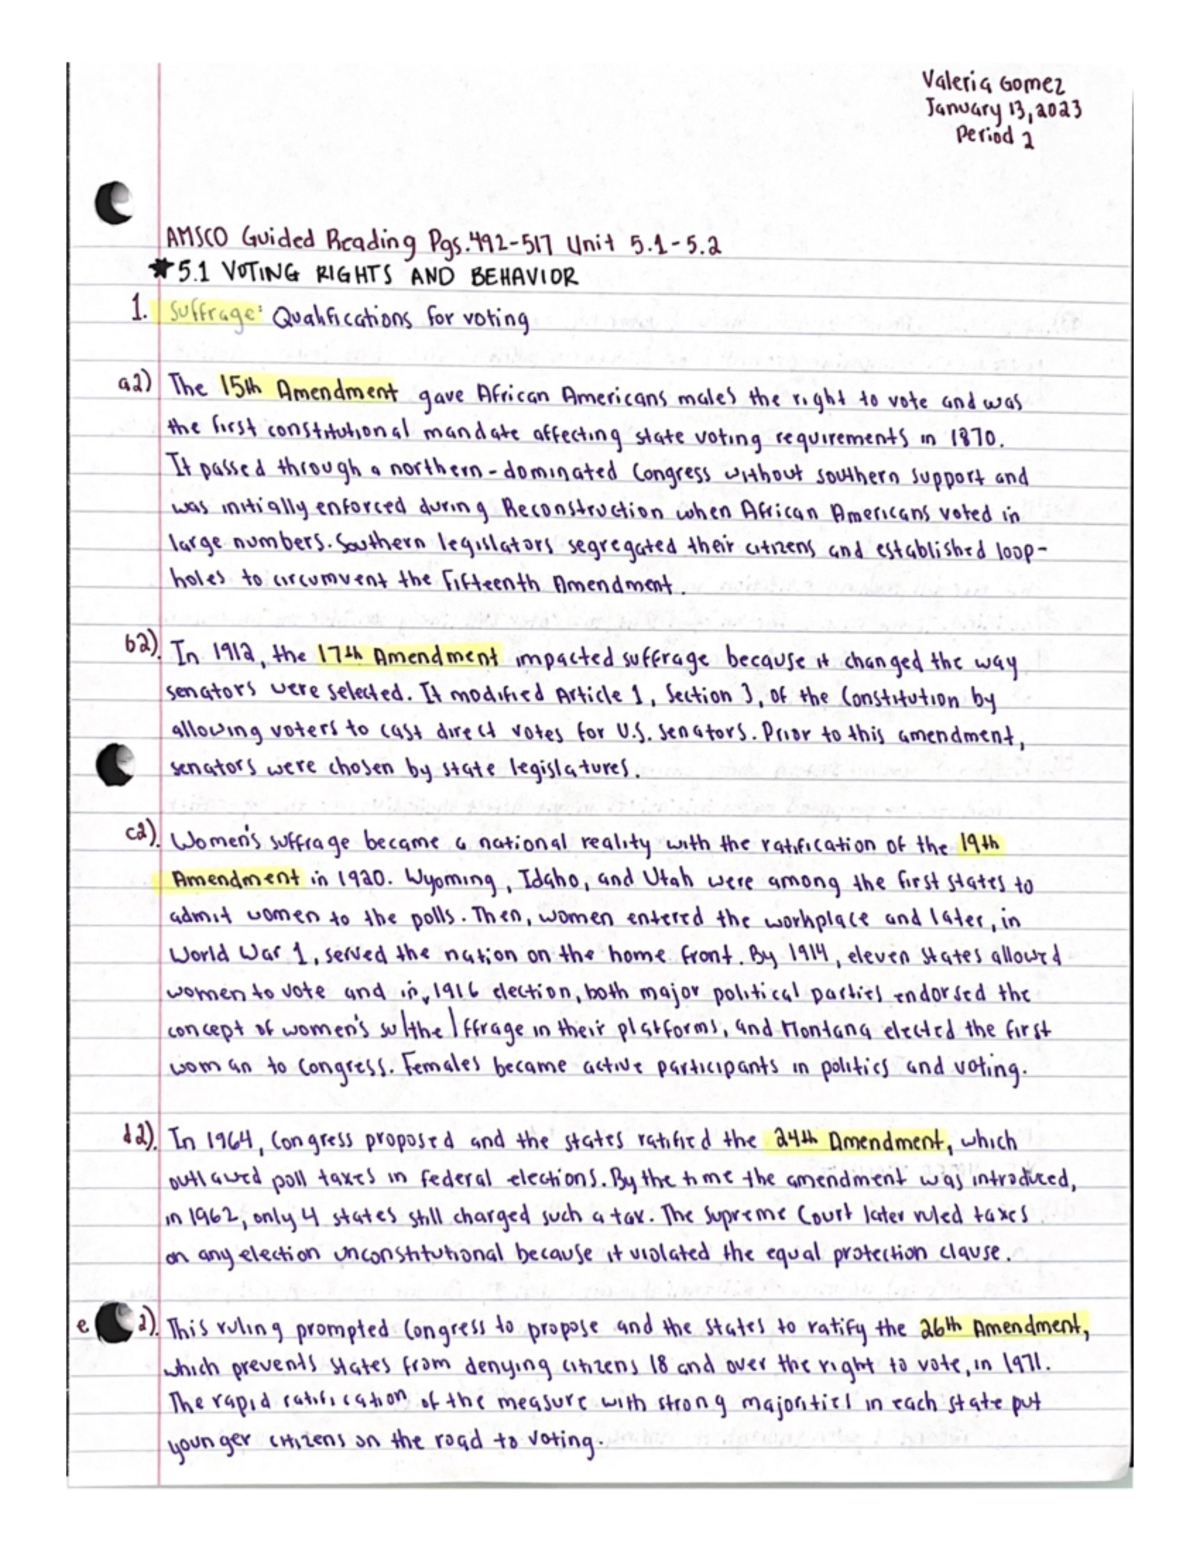 Valeria Gomez
January 13, 2023
Period 2
AMSCO Guided Reading Pgs.492-517 Unit 5.1-5.2
★5.1 VOTING RIGHTS AND BEHAVIOR
1. Suffrage: Qualifications for voting
a2) The 15th Amendment gave African Americans males the right to vote and was
the first constitutional mandate affecting state voting requirements in 1870.
It passed through a northern-dominated Congress without southern support and
was initially enforced during Reconstruction when African Americans voted in
large numbers. Southern legislators segregated their citizens and established loop-
holes to circumvent the Fifteenth Amendment.
b2). In 1912, the 17th Amendment impacted suffrage because it changed the way
senators were selected. It modified Article 1, Section 3, of the Constitution by
allowing voters to cast direct votes for U.S. Senators. Prior to this amendment,
senators were chosen by state legislatures.
c2). Women's suffrage became a national reality with the ratification of the 19th
Amendment in 1920. Wyoming, Idaho, and Utah were among the first states to
admit women to the polls. Then, women entered the workplace and later, in
World War 1, served the nation on the home front. By 1914, eleven states allowed
women to vote and in 1916 election, both major political parties endorsed the
concept of women's su|the|ffrage in their platforms, and Montana elected the first
woman to Congress. Females became active participants in politics and voting.
d2). In 1964, Congress proposed and the states ratified the 24th Amendment, which
outlawed poll taxes in federal elections. By the time the amendment was introduced,
in 1962, only 4 states still charged such a tax. The Supreme Court later ruled taxes
on any election unconstitutional because it violated the equal protection clause.
e2). This ruling prompted Congress to propose and the states to ratify the 26th Amendment,
which prevents states from denying citizens 18 and over the right to vote, in 1971.
The rapid ratification of the measure with strong majorities in each state put
younger citizens on the road to voting.